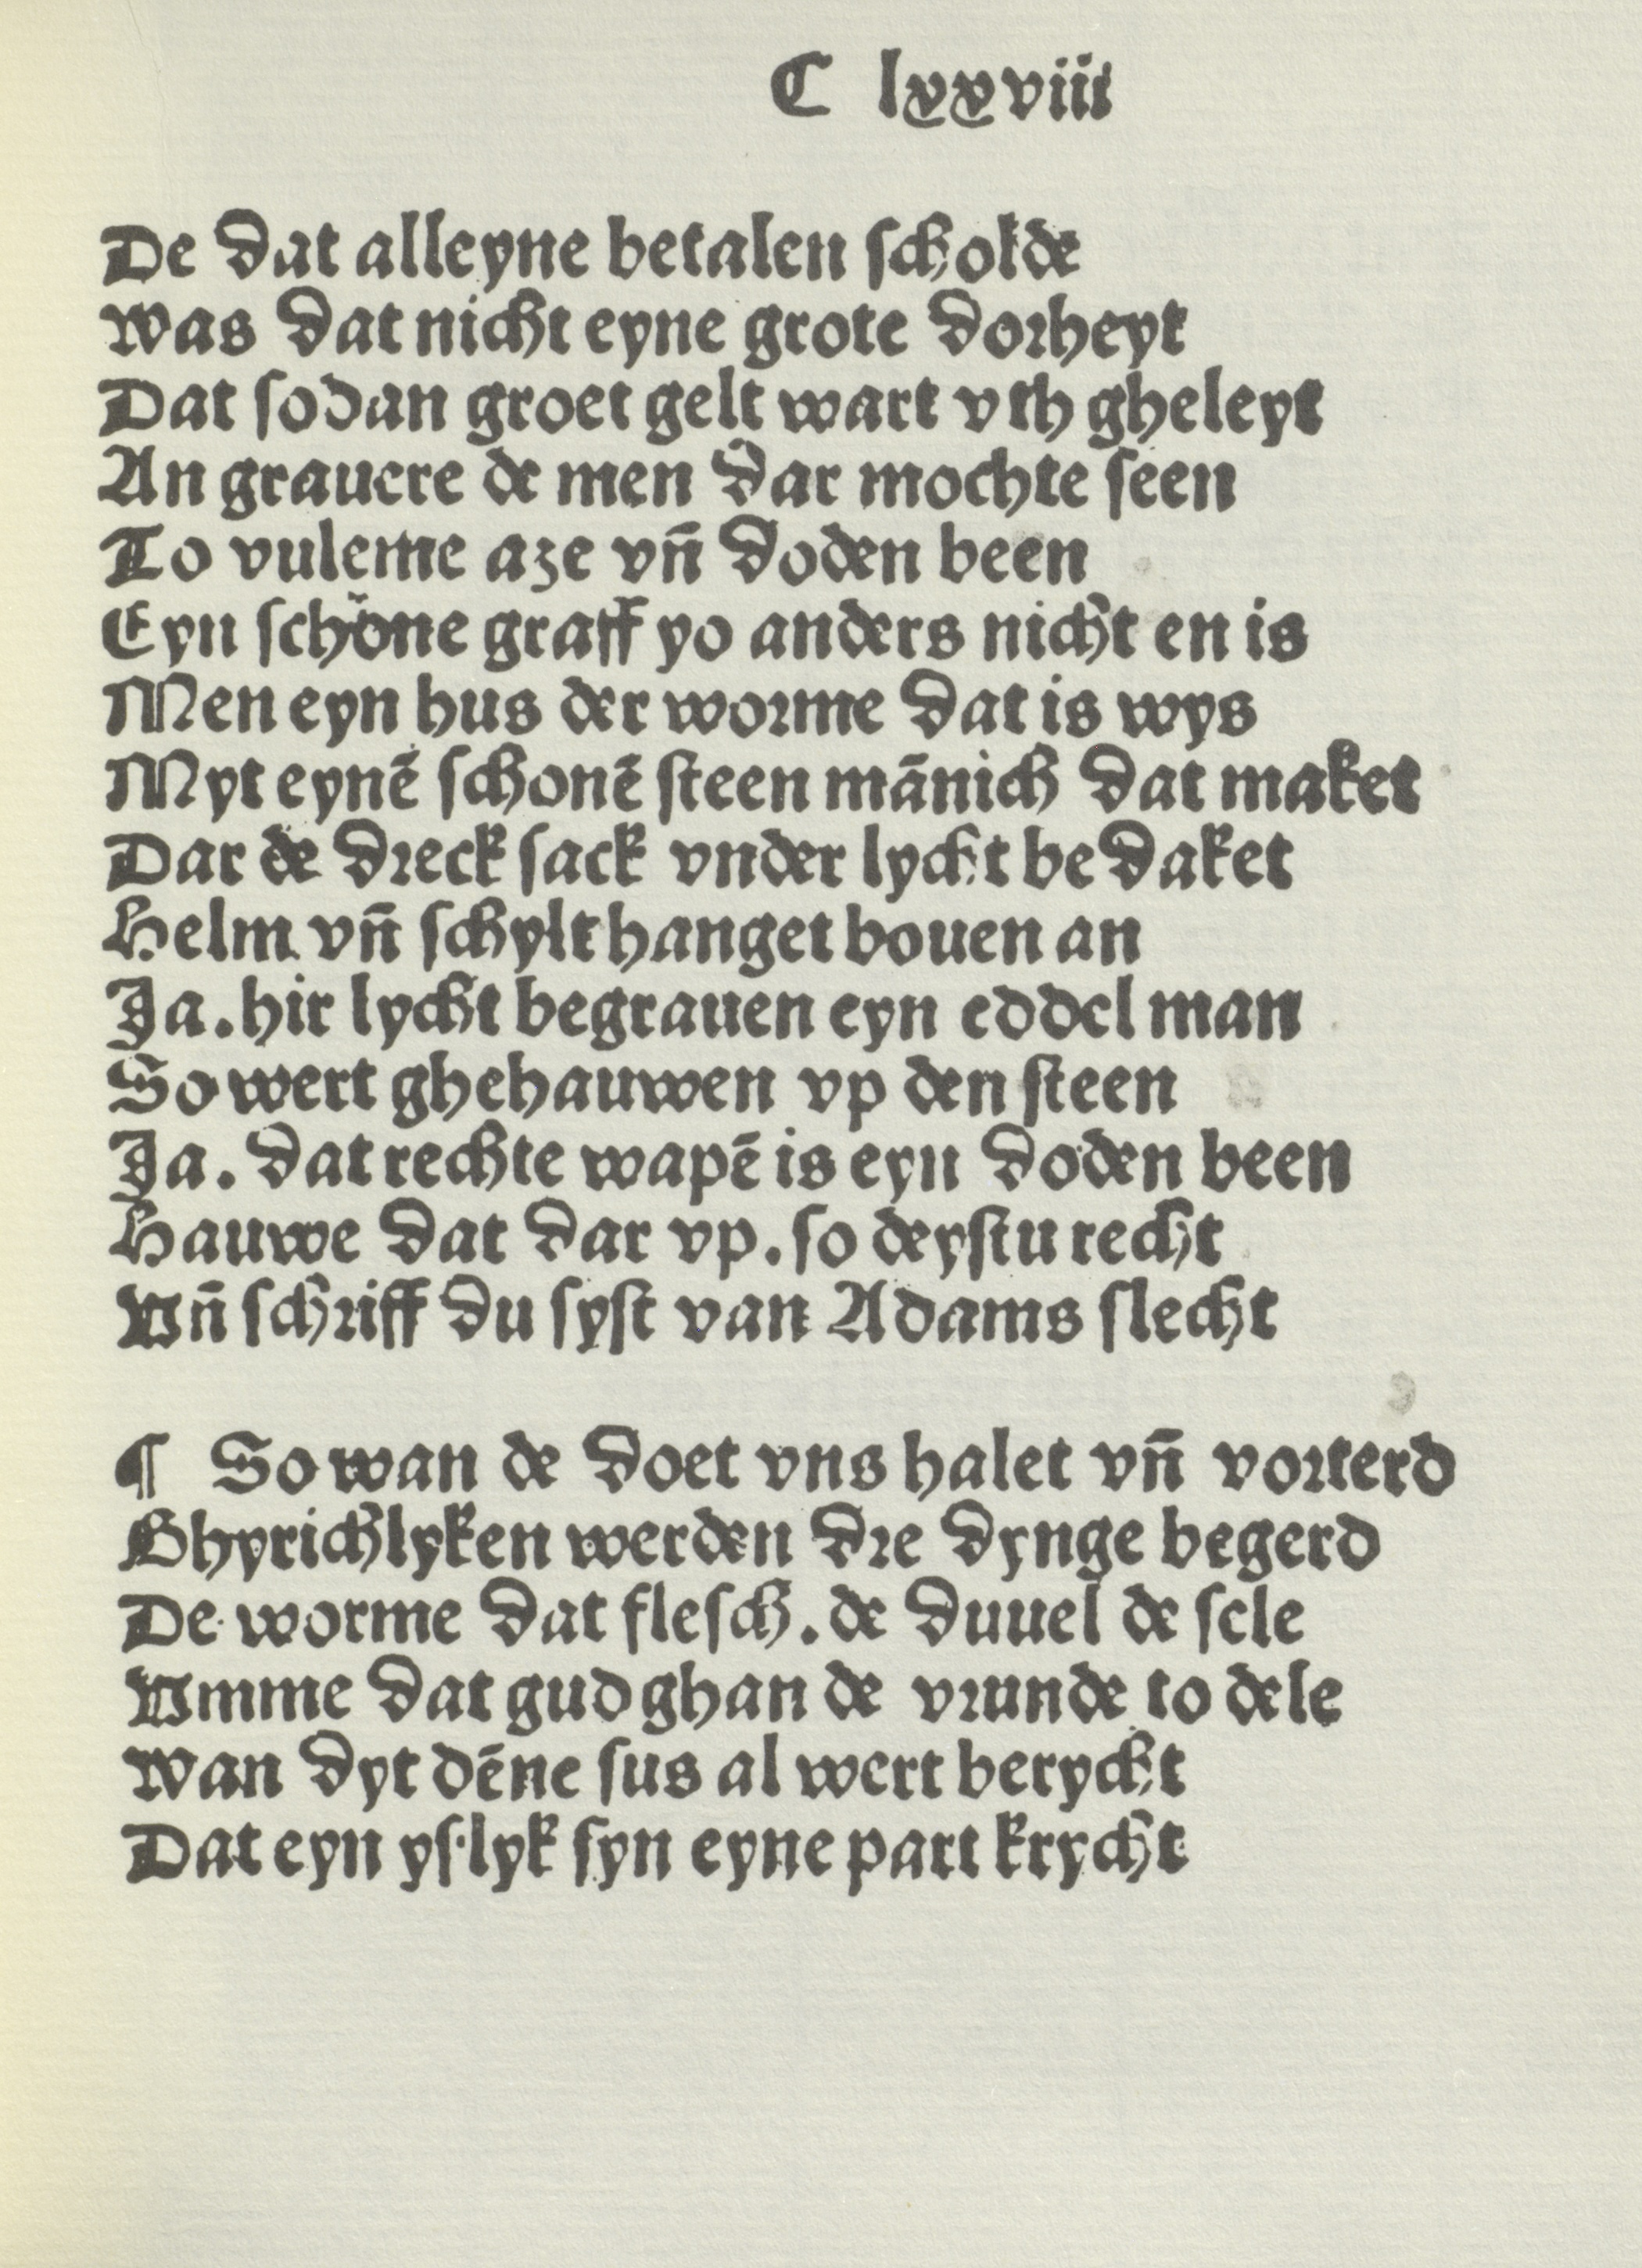 C lxxviii
De dat alleyne betalen ſcholde
Was dat nicht eyne grote dorheyt
Dat ſodan groet gelt wart vth gheleyt
An grauere de men dar mochte ſeen
To vuleme aze vn̄ doden been
Eyn ſchöne graff yo anders nicht en is
Men eyn hus der worme dat is wys
Myt eynē ſchonē ſteen mānich dat maket
Dar de dreck ſack vnder lycht bedaket
Helm vn̄ ſchylt hanget bouen an
Ja. hir lycht begrauen eyn eddel man
So wert ghehauwen vp den ſteen
Ja. dat rechte wapē is eyn doden been
Hauwe dat dar vp. ſo deyſtu recht
Vn̄ ſchriff du ſyſt van Adams ſlecht
¶ So wan de doet vns halet vn̄ vorterd
Ghyrichlyken werden dre dynge begerd
De worme dat fleſch. de duuel de ſele
Vmme dat gud ghan de vrunde to dele
Wan dyt dēne ſus al wert berycht
Dat eyn yſlyk ſyn eyne part krycht